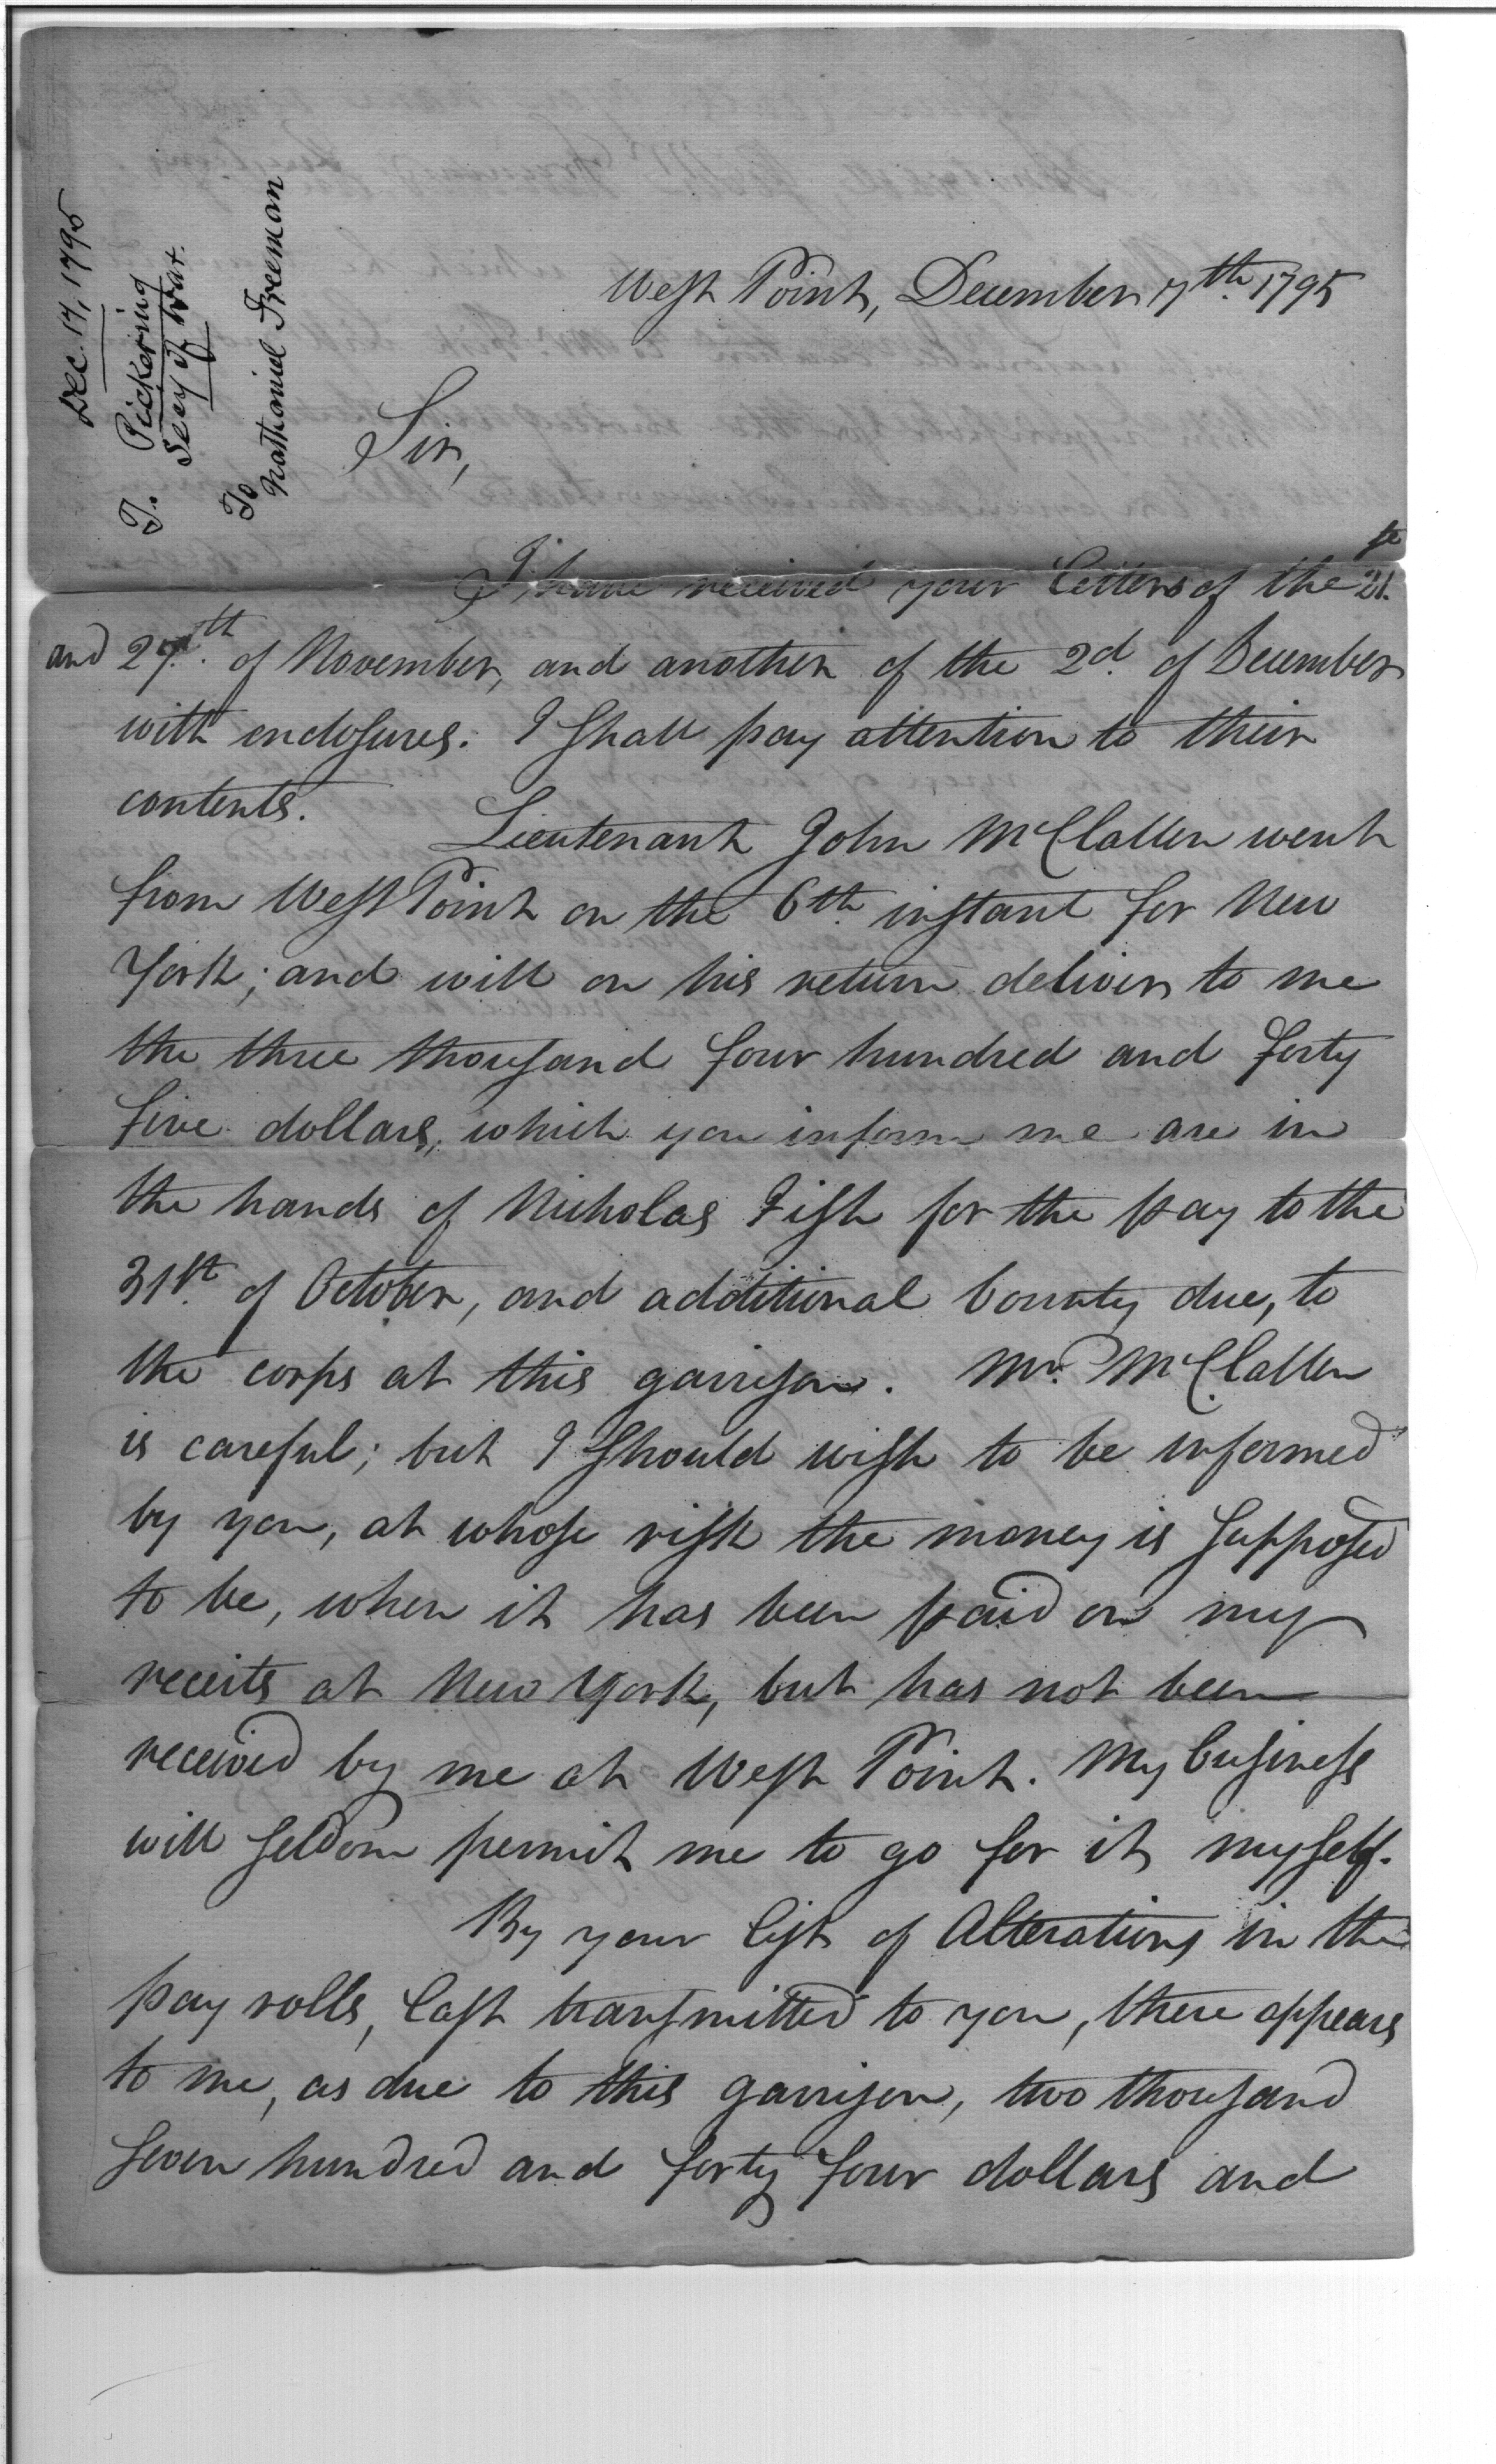 Dec. 17, 1795
T. Pickering
Secy of War.
To
Nathaniel Freeman
West Point, December 17th. 1795
Sir,
I have received your letters of the 21.st
and 27.th of November, and another of the 2d. of December
with enclosures. I shall pay attention to their
contents. Lieutenant John McClallen went
from West Point on the 6th instant for New
York; and will on his return deliver to me
the three thousand four hundred and forty
five dollars, which you inform me are in
the hands of Nicholas Fish for the pay to the
31st. of October, and additional bounty due, to
the corps at this garrison. Mr. McClallen
is careful; but I should wish to be informed
by you, at whose risk the money is supposed
to be, when it has been paid on my
receits at New York, but has not been
received by me at West Point. My business
will seldom permit me to go for it myself.
By your list of Alterations in the
pay rolls, last transmitted to you, there appears
to me, as due to this garrison, two thousand
seven hundred and forty four dollars and